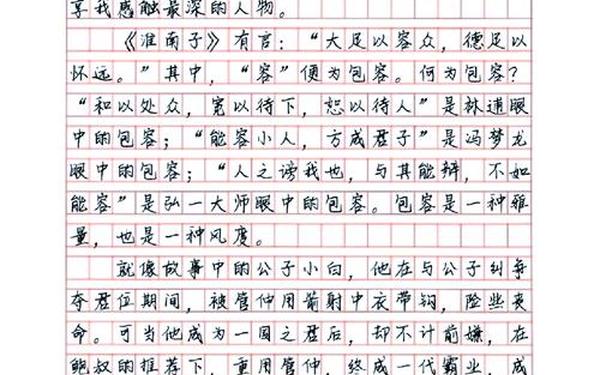 享我感触最深的人物。
《淮南子》有言：“大足以容众，德足以
怀远。”其中，“容”便为包容。何为包容？
“和以处众，宽以待下，恕以待人”是林逋眼
中的包容；“能容小人，方成君子”是冯梦龙
眼中的包容；“人之谤我也，与其能辩，不如
能容”是弘一大师眼中的包容。包容是一种雅
量，也是一种风度。
就像故事中的公子小白，他在与公子纠争
夺君位期间，被管仲用箭射中衣带钩，险些丧
命。可当他成为一国之君后，却不计前嫌，在
鲍叔的推荐下，重用管仲，终成一代霸业，成